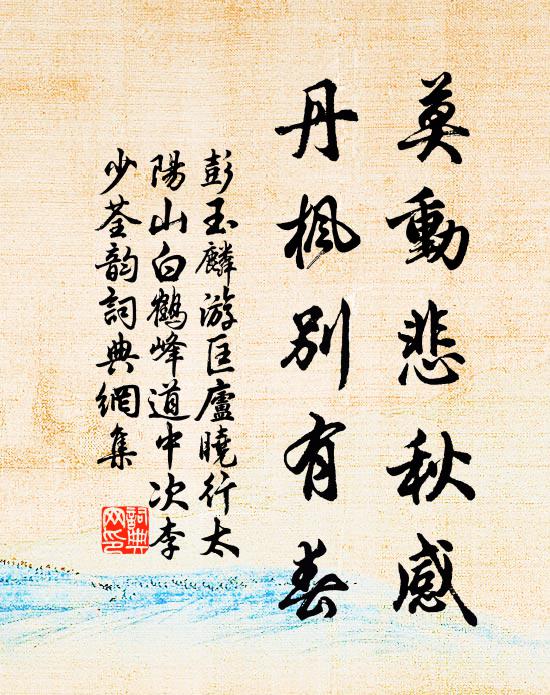 莫動悲秋感
丹楓別有春
彭玉麟游匡廬曉行太
陽山白鶴峰道中次李
少荃韵詞典網集
詞典
网印